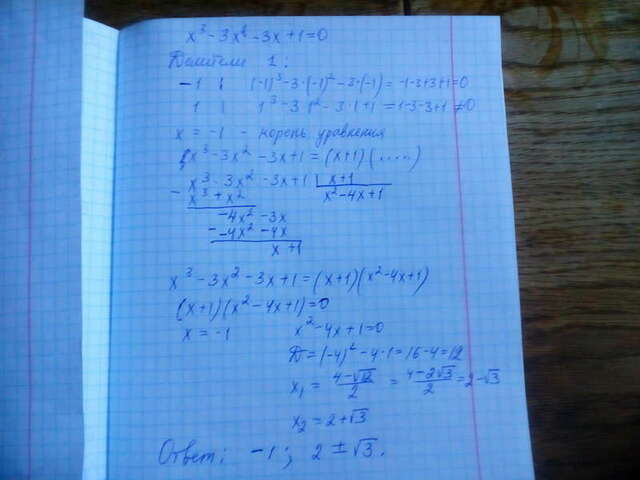 x³ - 3x² - 3x + 1 = 0
Делители 1:
-1 ; (-1)³ - 3·(-1)² - 3·(-1) = -1-3+3+1=0
1 ; 1³ - 3·1² - 3·1+1 = 1-3-3+1 ≠ 0
x = -1 - корень уравнения
x³ - 3x² - 3x + 1 = (x+1)(.....)
x³ - 3x² - 3x + 1 | x+1
- x³ + x² x² - 4x + 1
-4x² - 3x
- -4x² - 4x
x + 1
x³ - 3x² - 3x + 1 = (x+1)(x² - 4x + 1)
(x+1)(x² - 4x + 1) = 0
x = -1 x² - 4x + 1 = 0
D = (-4)² - 4·1 = 16 - 4 = 12
x₁ = (4-√12)/2 = (4-2√3)/2 = 2-√3
x₂ = 2+√3
Ответ: -1; 2 ± √3.